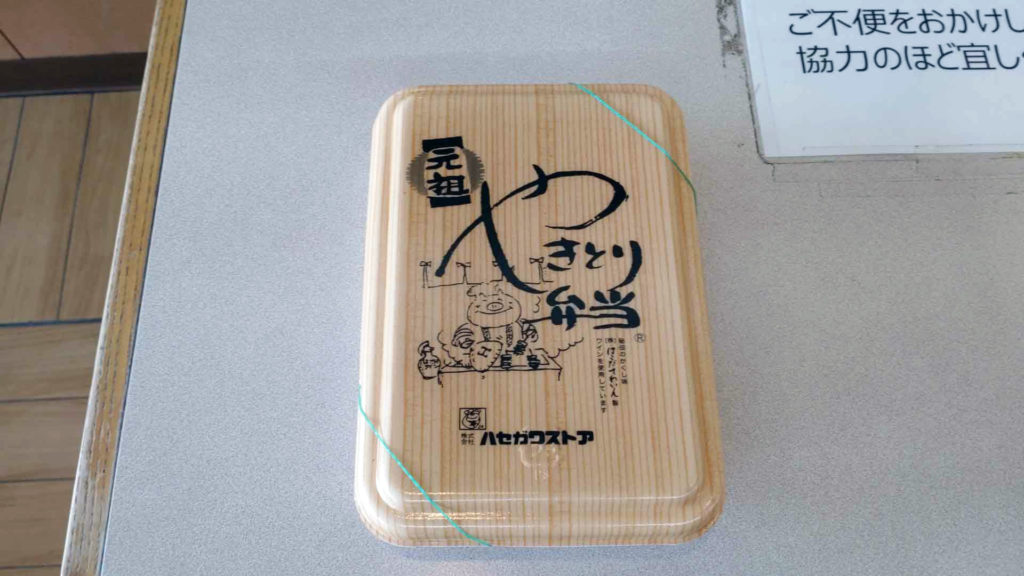 ご不便をおかけし
協力のほど宜し
元祖
やきとり
弁当
®
秘伝のかくし味
(株)はこだてわいん製
ワインを使用しています
株式会社 ハセガワストア